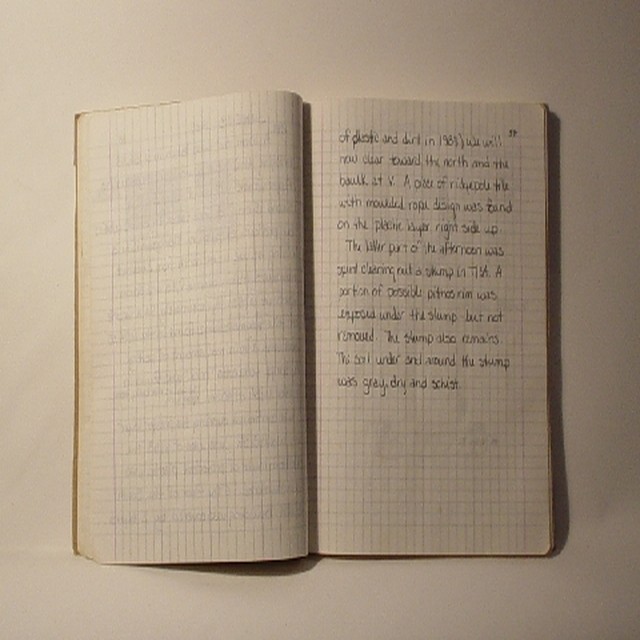 of plastic and dirt in 1983) we will
now clear toward the north and the
baulk at V. A piece of ridgepole tile
with moulded rope design was found
on the plastic layer right side up.
The latter part of the afternoon was
spent cleaning out a stump in T18A. A
portion of possible pithos rim was
exposed under the stump but not
removed. The stump also remains.
The soil under and around the stump
was gray, dry and schist.